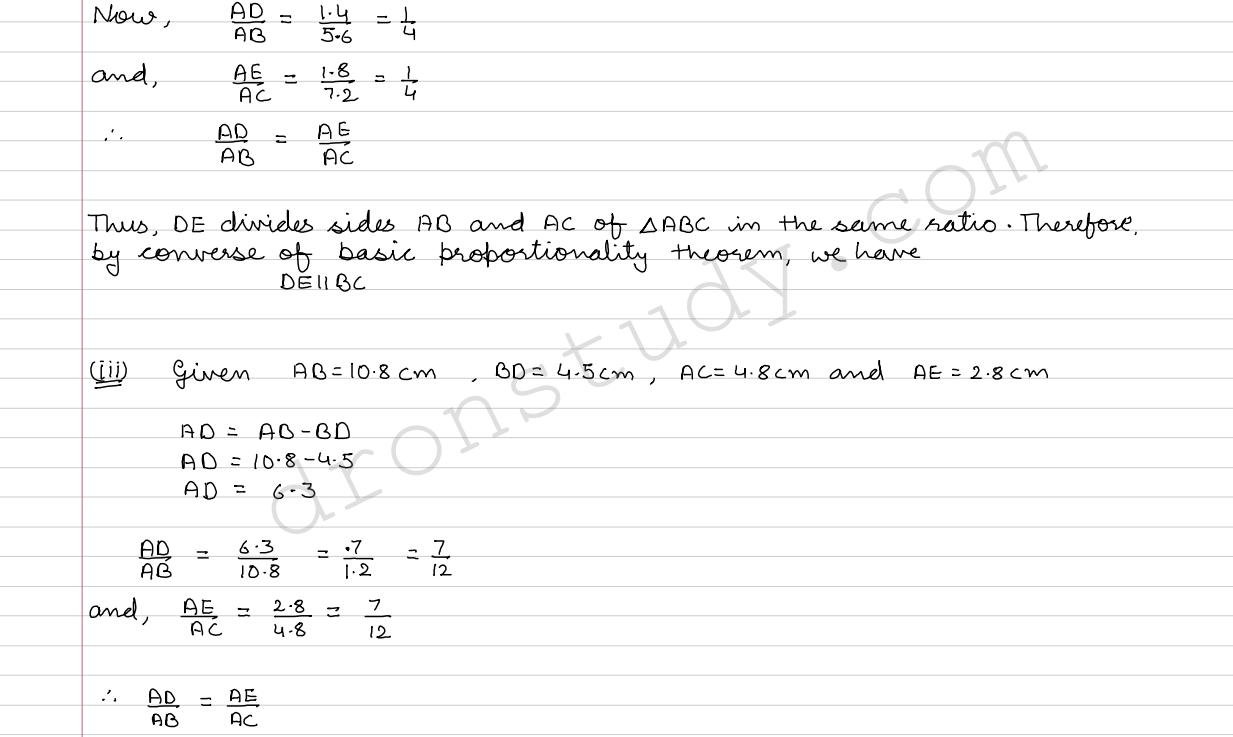 Now, AD/AB = 1.4/5.6 = 1/4
and, AE/AC = 1.8/7.2 = 1/4
∴ AD/AB = AE/AC
Thus, DE divides sides AB and AC of △ABC in the same ratio. Therefore,
by converse of basic proportionality theorem, we have
DE||BC
(iii) Given AB=10.8 cm , BD= 4.5cm, AC= 4.8cm and AE = 2.8cm
AD = AB-BD
AD = 10.8-4.5
AD = 6.3
AD/AB = 6.3/10.8 = .7/1.2 = 7/12
and, AE/AC = 2.8/4.8 = 7/12
∴ AD/AB = AE/AC
dronstudy.com